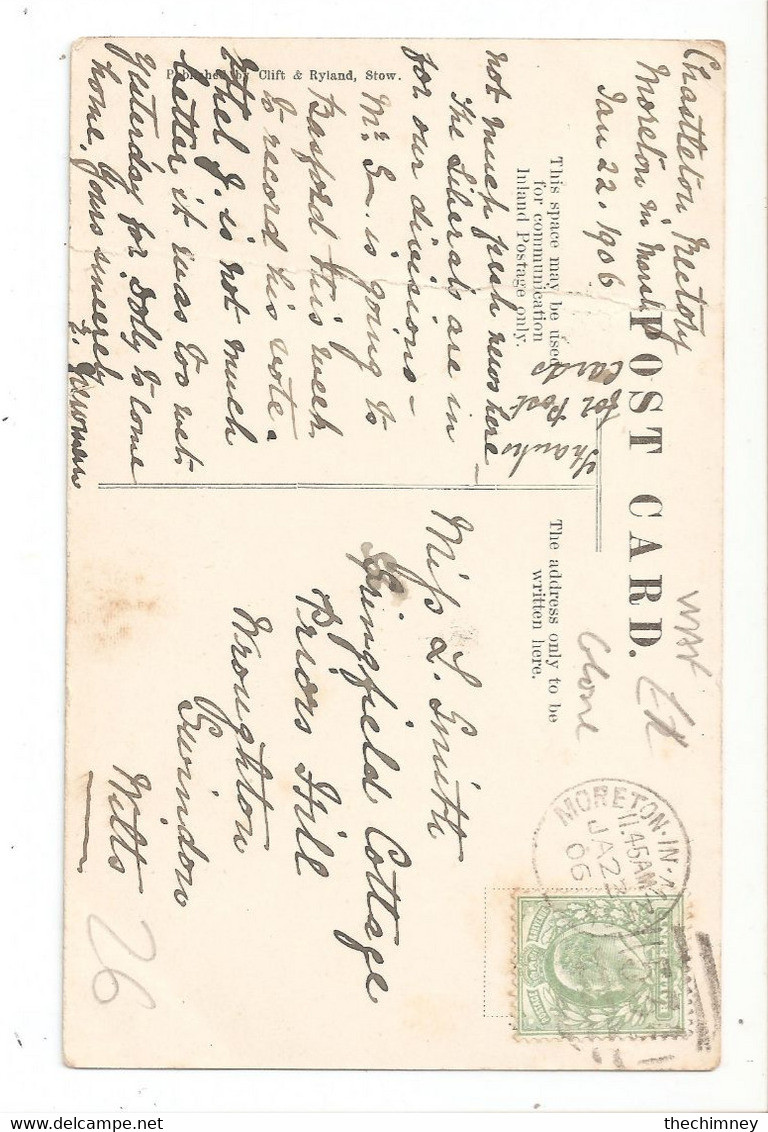 Chastleton Rectory
Moreton in Marsh
Jan 22. 1906
POST CARD.
This space may be used
for communication
Inland Postage only.
The address only to be
written here.
Thanks
for Post
Cards
not much fresh news here
The Liberals are in
for our divisions -
Mr G. is going to
Basford this week
to record his vote.
Ethel J. is not much
better, it was too wet
yesterday for Dolly to come
home, Yours sincerely
Published by Clift & Ryland, Stow.
Miss L. Smith
Springfield Cottage
Priors Hill
Wroughton
Swindon
Wilts
MORETON-IN-M
11.45AM
JA22
06
26
delcampe.net
thechimney